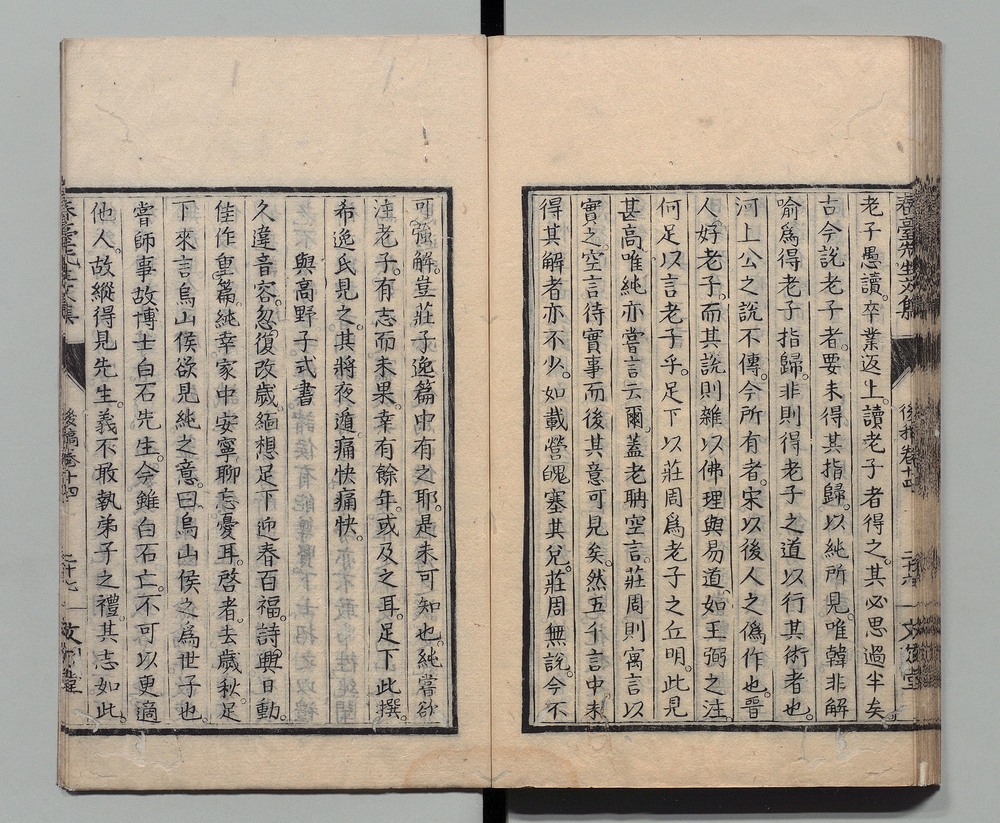 老子愚讀。卒業返上。讀老子者得之。其必思過半矣
古今說老子者。要未得其指歸。以純所見。唯韓非解
喻爲得老子指歸。非則得老子之道以行其術者也。
河上公之說不傳。今所有者。宋以後人之僞作也。晉
人好老子。而其說則雜以佛理與易道。如王弼之注
何足以言老子乎。足下以莊周爲老子之丘明。此見
甚高。唯純亦嘗言云爾。蓋老聃空言。莊周則寓言以
實之。空言待實事而後其意可見矣。然五千言中。未
得其解者亦不少。如載營魄塞其兌。莊周無說。今不
春臺先生文集
後稿卷十四
二十六
文堂
可強解。豈莊子逸篇中有之耶。是未可知也。純嘗欲
注老子。有志而未果。幸有餘年。或及之耳。足下此撰。
希逸氏見之。其將夜遁。痛快痛快。
與高野子式書
久違音容。忽復改歲。緬想足下迎春百福。詩興日動。
佳作皇篇。純幸家中安寧。聊忘憂耳。啓者。去歲秋。足
下來言烏山侯欲見純之意。曰。烏山侯之爲世子也。
嘗師事故博士白石先生。今雖白石亡。不可以更適
他人。故縱得見先生。義不敢執弟子之禮。其志如此。
春臺先生文集
後稿卷十四
二十七